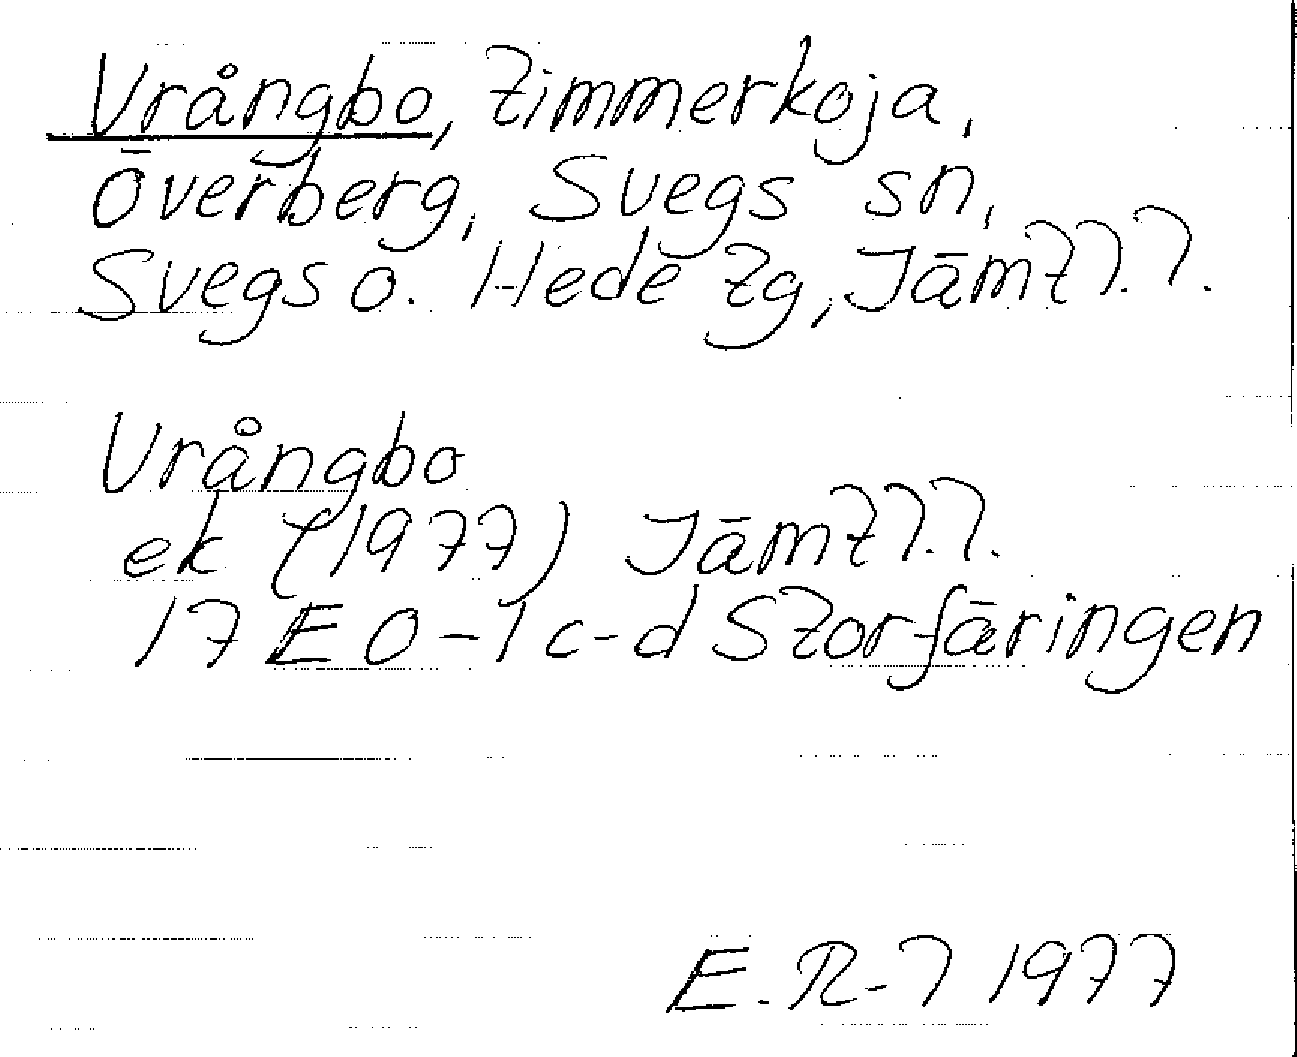 Vrångbo, timmerkoja,
Överberg, Svegs sn,
Svegs o. Hede tg, Jämtl.l.
Vrångbo
ek (1977) Jämtl.l.
17 E 0-1 c-d Storfäringen
E. R-l 1977